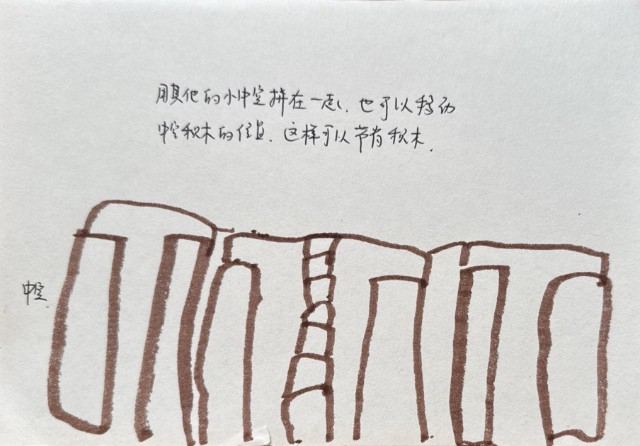 用其他的小中空拼在一起，也可以移动
中空积木的位置，这样可以节省积木．
中空